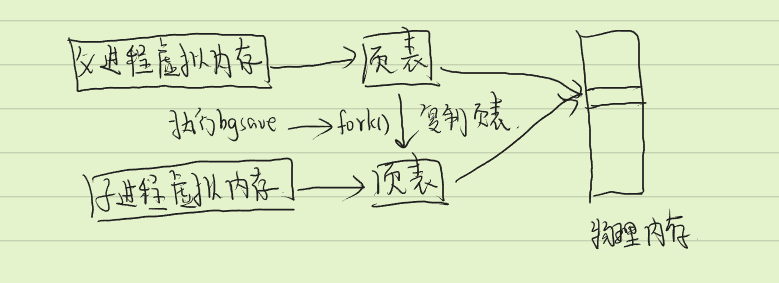 父进程虚拟内存 页表
执行bgsave fork() 复制页表.
子进程虚拟内存 页表
物理内存